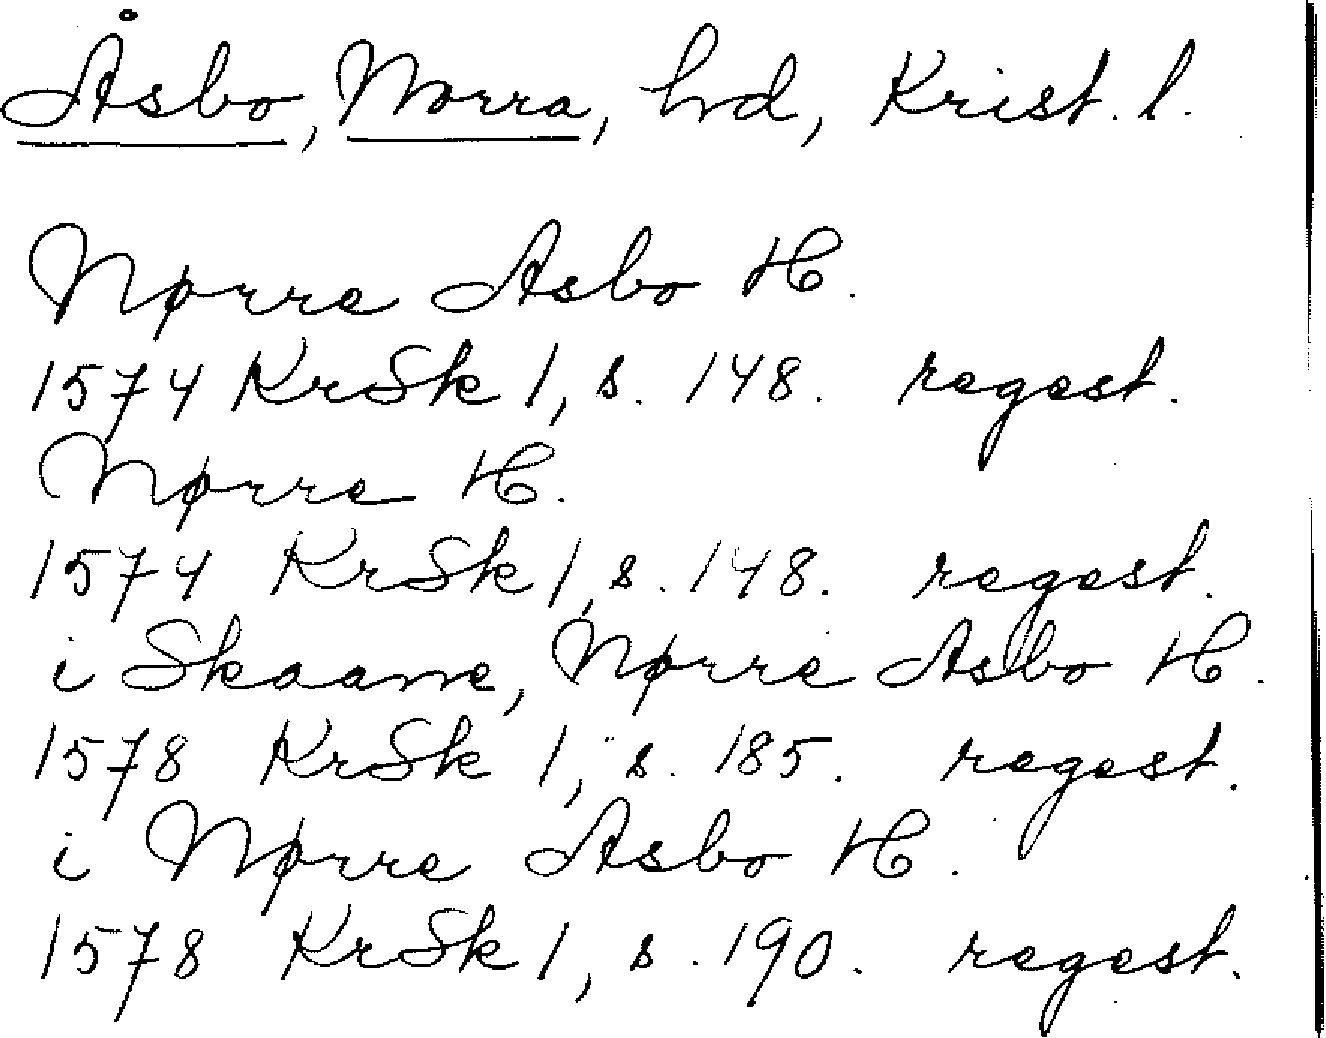 Åsbo, Norra, hrd, Krist. l.
Nørre Asbo H.
1574 KrSk 1, s. 148. regest.
Nørre H.
1574 KrSk 1, s. 148. regest.
i Skaane, Nørre Asbo H.
1578 KrSk 1, s. 185. regest.
i Nørre Asbo H.
1578 KrSk 1, s. 190. regest.